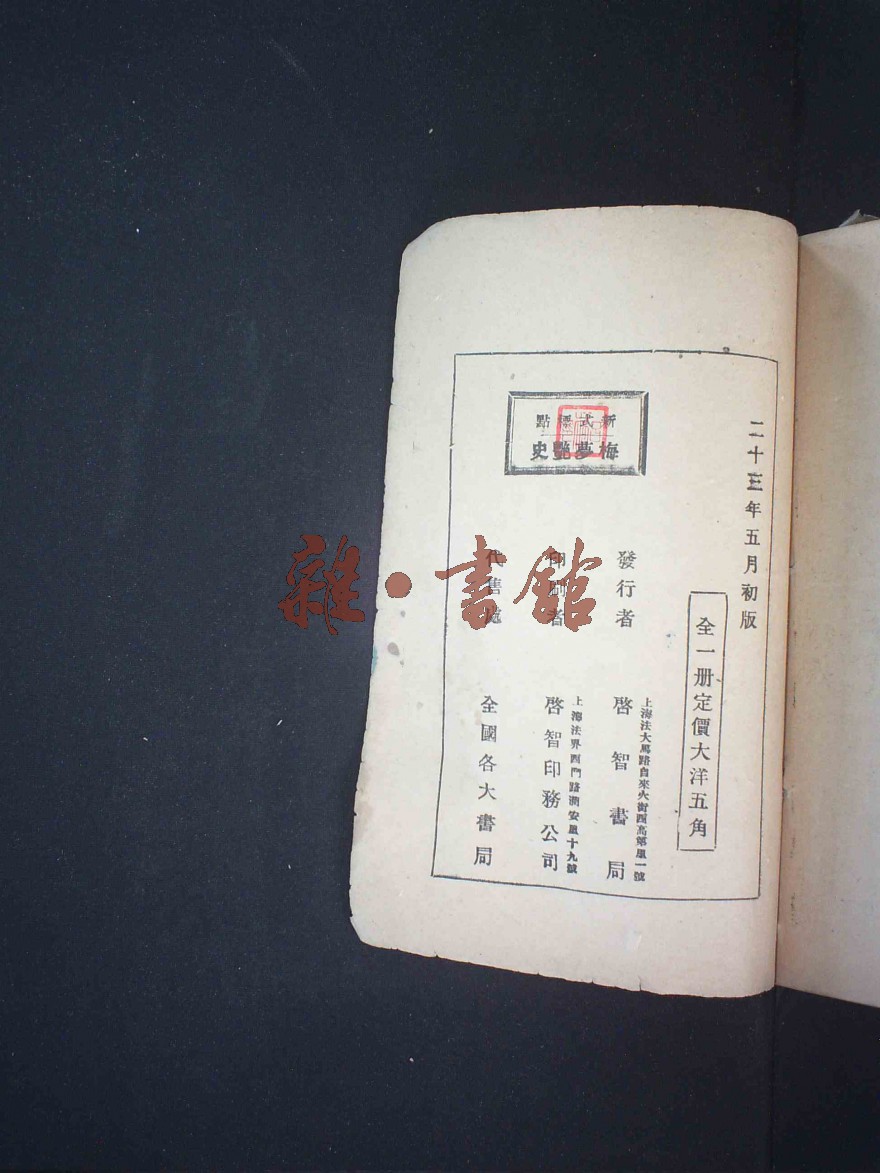 二十三年五月初版
全一册定價大洋五角
新式標點
梅夢艷史
發行者
上海法大馬路自來火街西高第里一號
啓智書局
印刷者
上海法界西門路潤安里十九號
啓智印務公司
代售處
全國各大書局
雜·書館